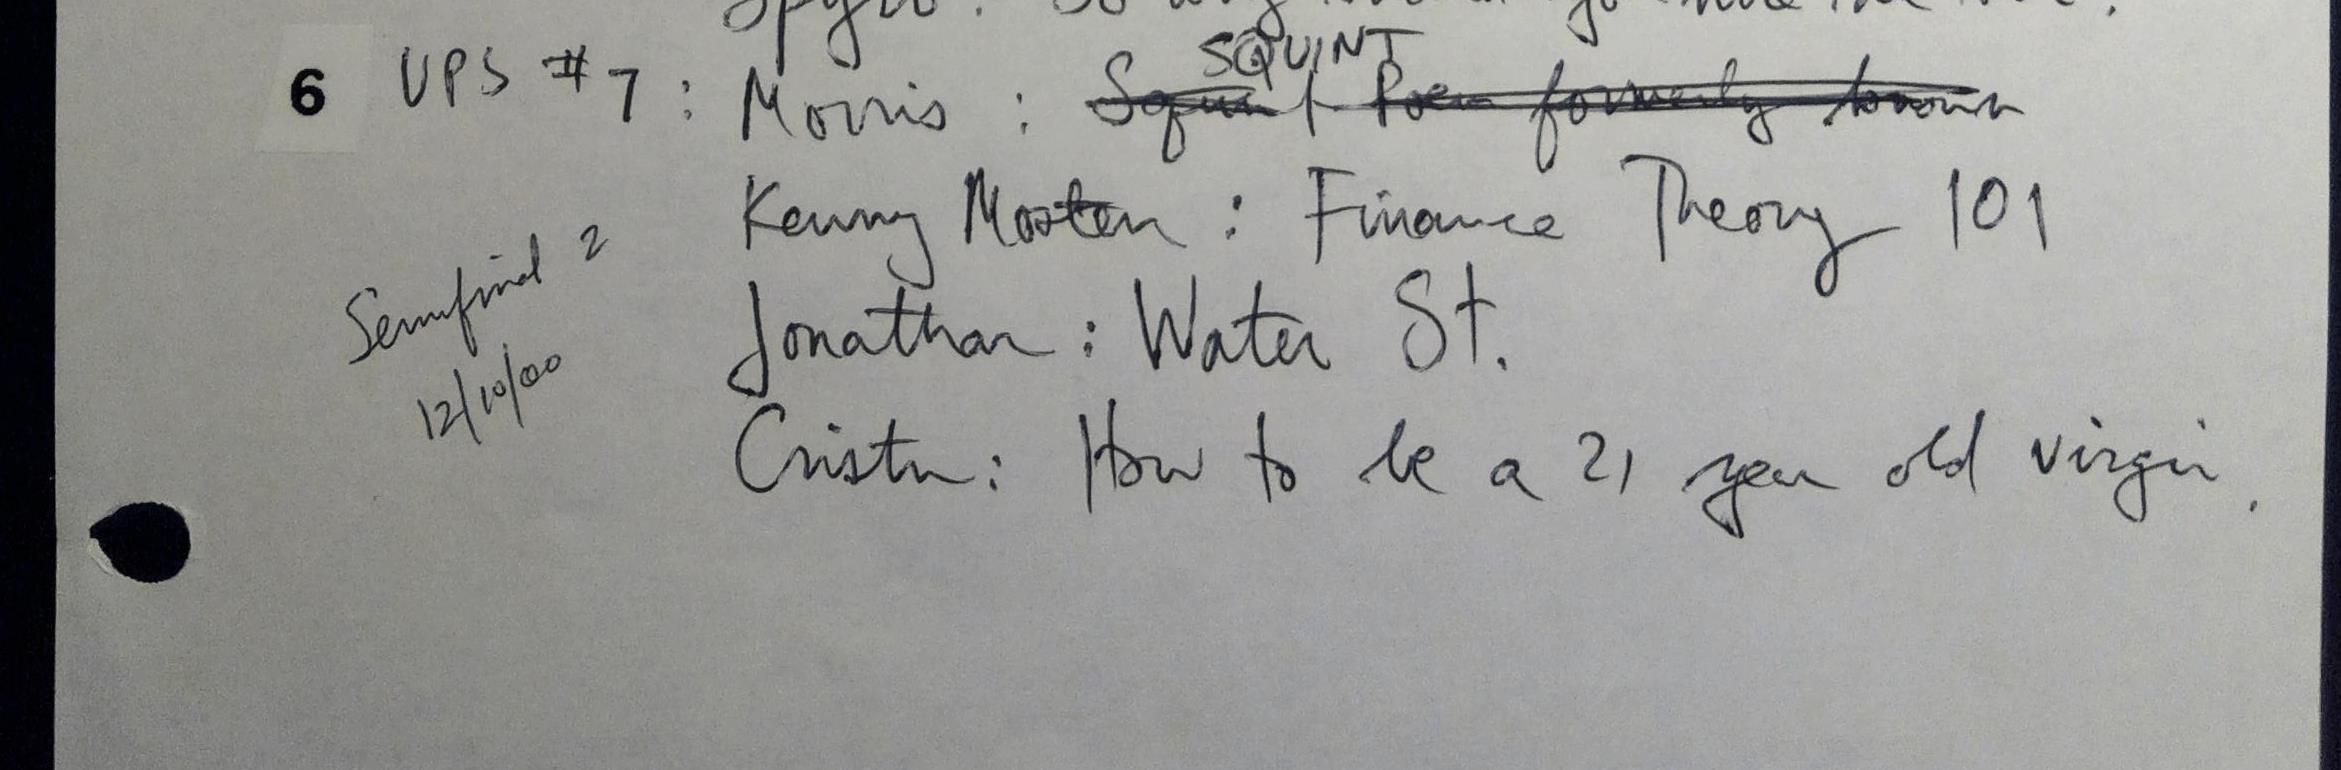 SQUINT
6 UPS #7: Morris: Squint Poem formerly known
Kenny Morten: Finance Theory 101
Semifinal 2
Jonathan: Water St.
12/10/00
Cristin: How to be a 21 year old virgin.